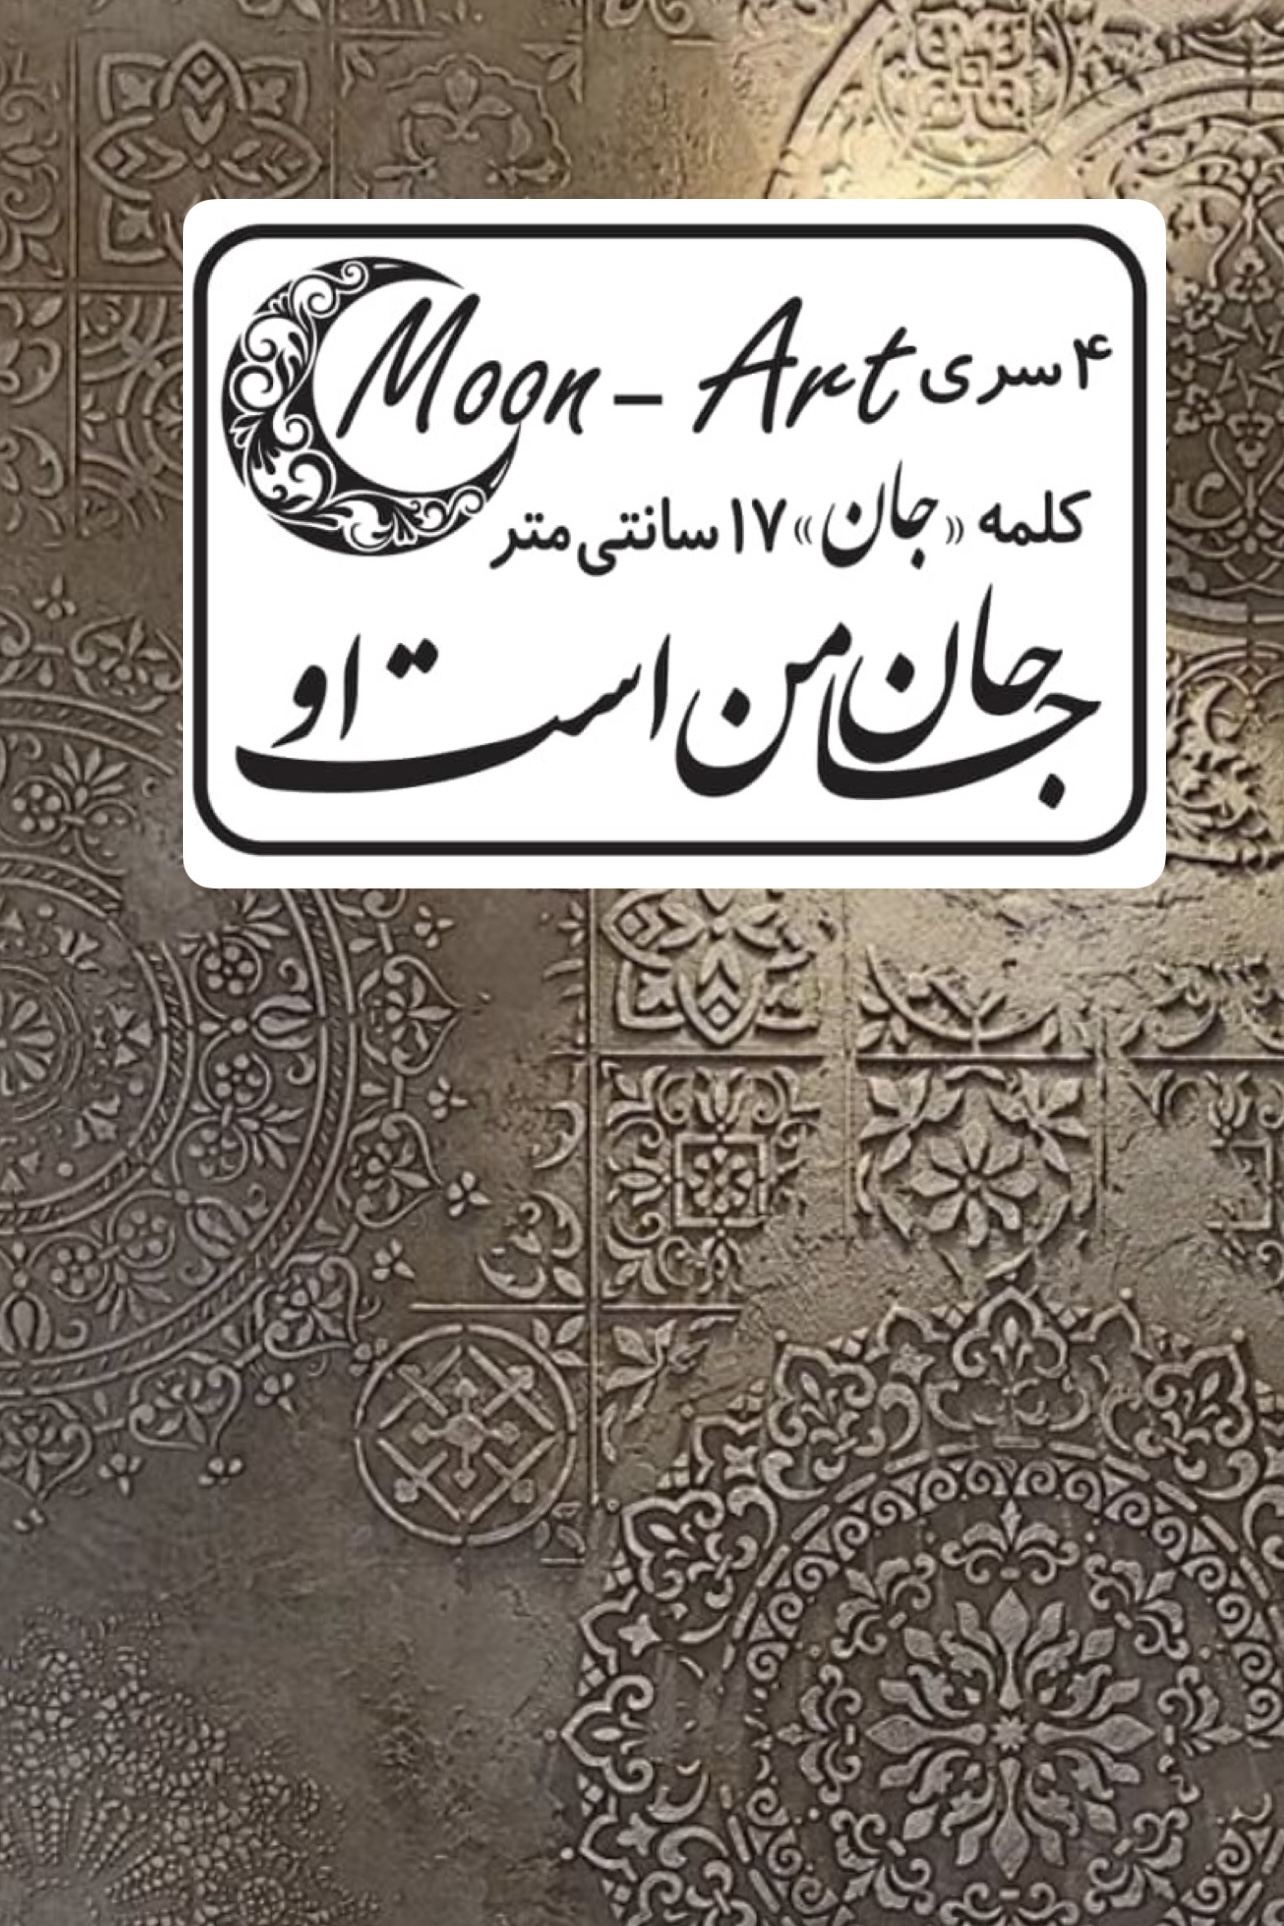 Moon - Art ۴ سری
کلمه «جان» ۱۷ سانتی متر
جان جانان من است او